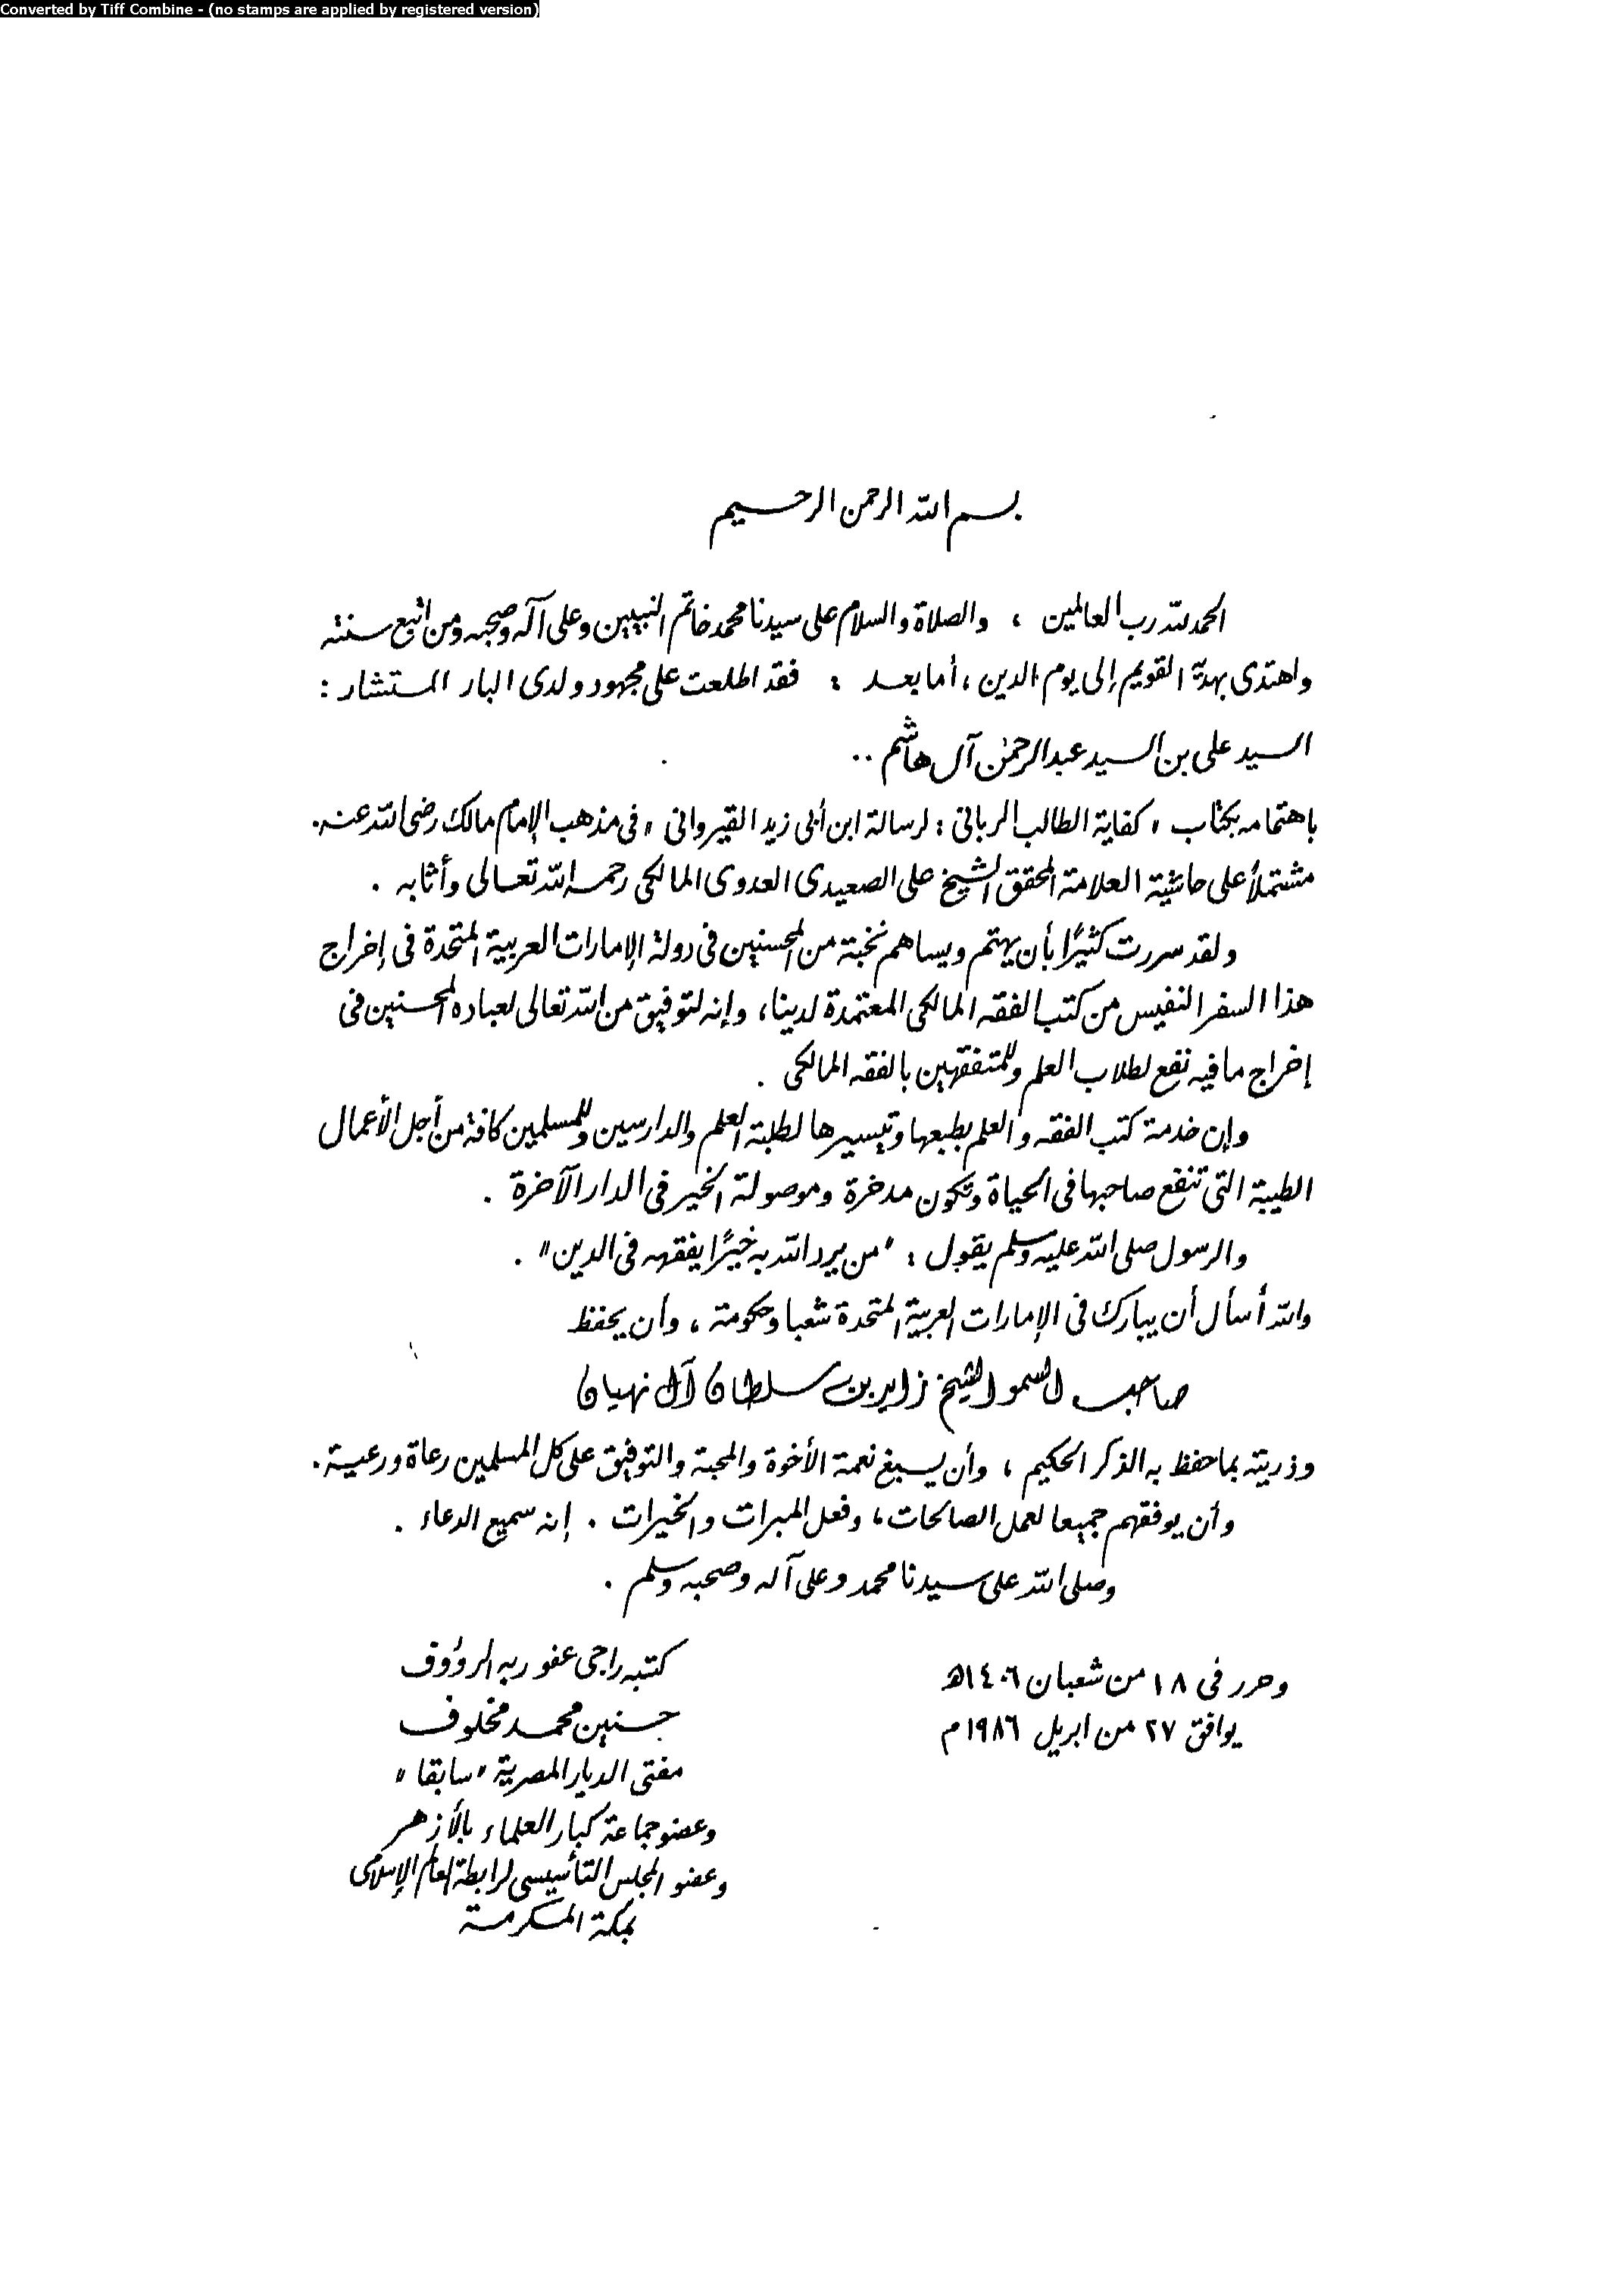 Converted by Tiff Combine - (no stamps are applied by registered version)
بسم الله الرحمن الرحيم
الحمد لله رب العالمين ، والصلاة والسلام على سيدنا محمد خاتم النبيين وعلى آله وصحبه ومن اتبع سنته
واهتدى بهديه القويم إلى يوم الدين ، أما بعد : فقد اطلعت على مجهود ولدى البار المستشار :
السيد على بن السيد عبد الرحمن آل هاشم ..
باهتمامه بكتاب " كفاية الطالب الربانى : لرسالة ابن أبى زيد القيروانى " فى مذهب الإمام مالك رضى الله عنه .
مشتملاً على حاشية العلامة المحقق الشيخ على الصعيدى العدوى المالكى رحمه الله تعالى وأثابه .
ولقد سررت كثيرًا بأن يهتم ويساهم نخبة من المحسنين فى دولة الإمارات العربية المتحدة فى إخراج
هذا السفر النفيس من كتب الفقه المالكى المعتمدة لدينا ، وإنه لتوفيق من الله تعالى لعباده المحسنين فى
إخراج ما فيه نفع لطلاب العلم وللمتفقهين بالفقه المالكى .
وإن خدمة كتب الفقه والعلم بطبعها وتيسيرها لطلبة العلم والدارسين وللمسلمين كافة من أجل الأعمال
الطيبة التى تنفع صاحبها فى الحياة وتكون مدخرة وموصولة الخير فى الدار الآخرة .
والرسول صلى الله عليه وسلم يقول : "من يرد الله به خيرًا يفقهه فى الدين" .
والله أسأل أن يبارك فى الإمارات العربية المتحدة شعبا وحكومة ، وأن يحفظ
صاحب السمو الشيخ زايد بن سلطان آل نهيان
وذريته بما حفظ به الذكر الحكيم ، وأن يسبغ نعمة الأخوة والمحبة والتوفيق على كل المسلمين رعاة ورعية .
وأن يوفقهم جميعا لعمل الصالحات ، وفعل المبرات والخيرات . إنه سميع الدعاء .
وصلى الله على سيدنا محمد وعلى آله وصحبه وسلم .
وحرر فى ١٨ من شعبان ١٤٠٦هـ
يوافق ٢٧ من ابريل ١٩٨٦م
كتبه راجى عفو ربه الرؤوف
حسنين محمد مخلوف
مفتى الديار المصرية "سابقا"
وعضو جماعة كبار العلماء بالأزهر
وعضو المجلس التأسيسى لرابطة العالم الإسلامى
بمكة المكرمة